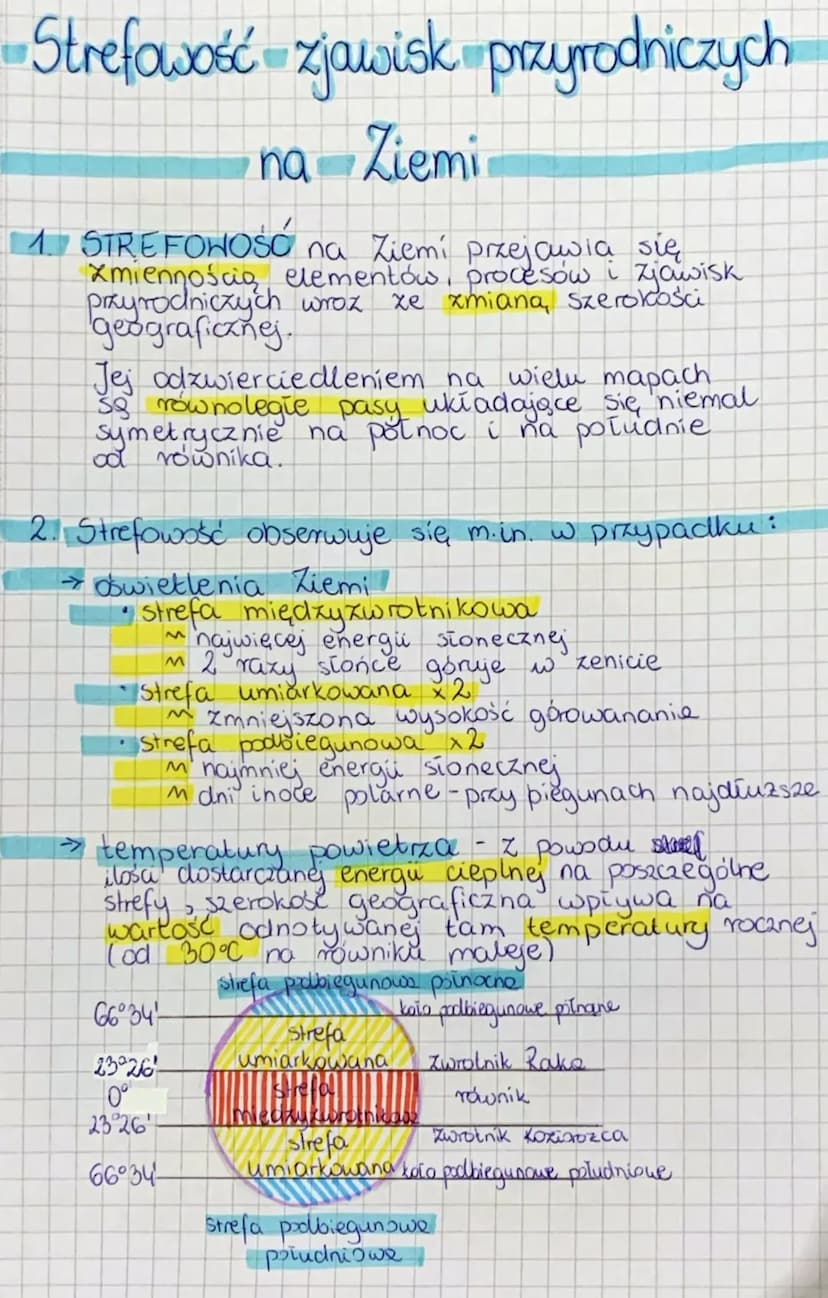 Strefowość zjawisk przyrodniczych
na Ziemi
1. STREFOWOŚĆ na Ziemi przejawia się
zmiennością elementów, procesów i zjawisk
przyrodniczych wraz ze zmianą szerokości
geograficznej.
Jej odzwierciedleniem na wielu mapach
są równoległe pasy układające się niemal
symetrycznie na północ i na południe
od równika.
2. Strefowość obserwuje się m.in. w przypadku:
→ oświetlenia Ziemi
• strefa międzyzwrotnikowa
~ najwięcej energii słonecznej
~ 2 razy słońce góruje w zenicie
• strefa umiarkowana x2
~ zmniejszona wysokość górowanania
• strefa podbiegunowa x2
~ najmniej energii słonecznej
~ dni i noce polarne - przy biegunach najdłuższe
→ temperatury powietrza - z powodu
ilości dostarczanej energii cieplnej na poszczególne
strefy, szerokość geograficzna wpływa na
wartość odnotywanej tam temperatury rocznej
(od 30°C na równiku maleje)
strefa podbiegunowa północna
66°34' koło podbiegunowe półnone
strefa
umiarkowana
23°26' zwrotnik Raka
0° równik
strefa
międzyzwrotnikowa
23°26' zwrotnik Koziorożca
strefa
umiarkowana
66°34' koło podbiegunowe południowe
strefa podbiegunowa
południowa